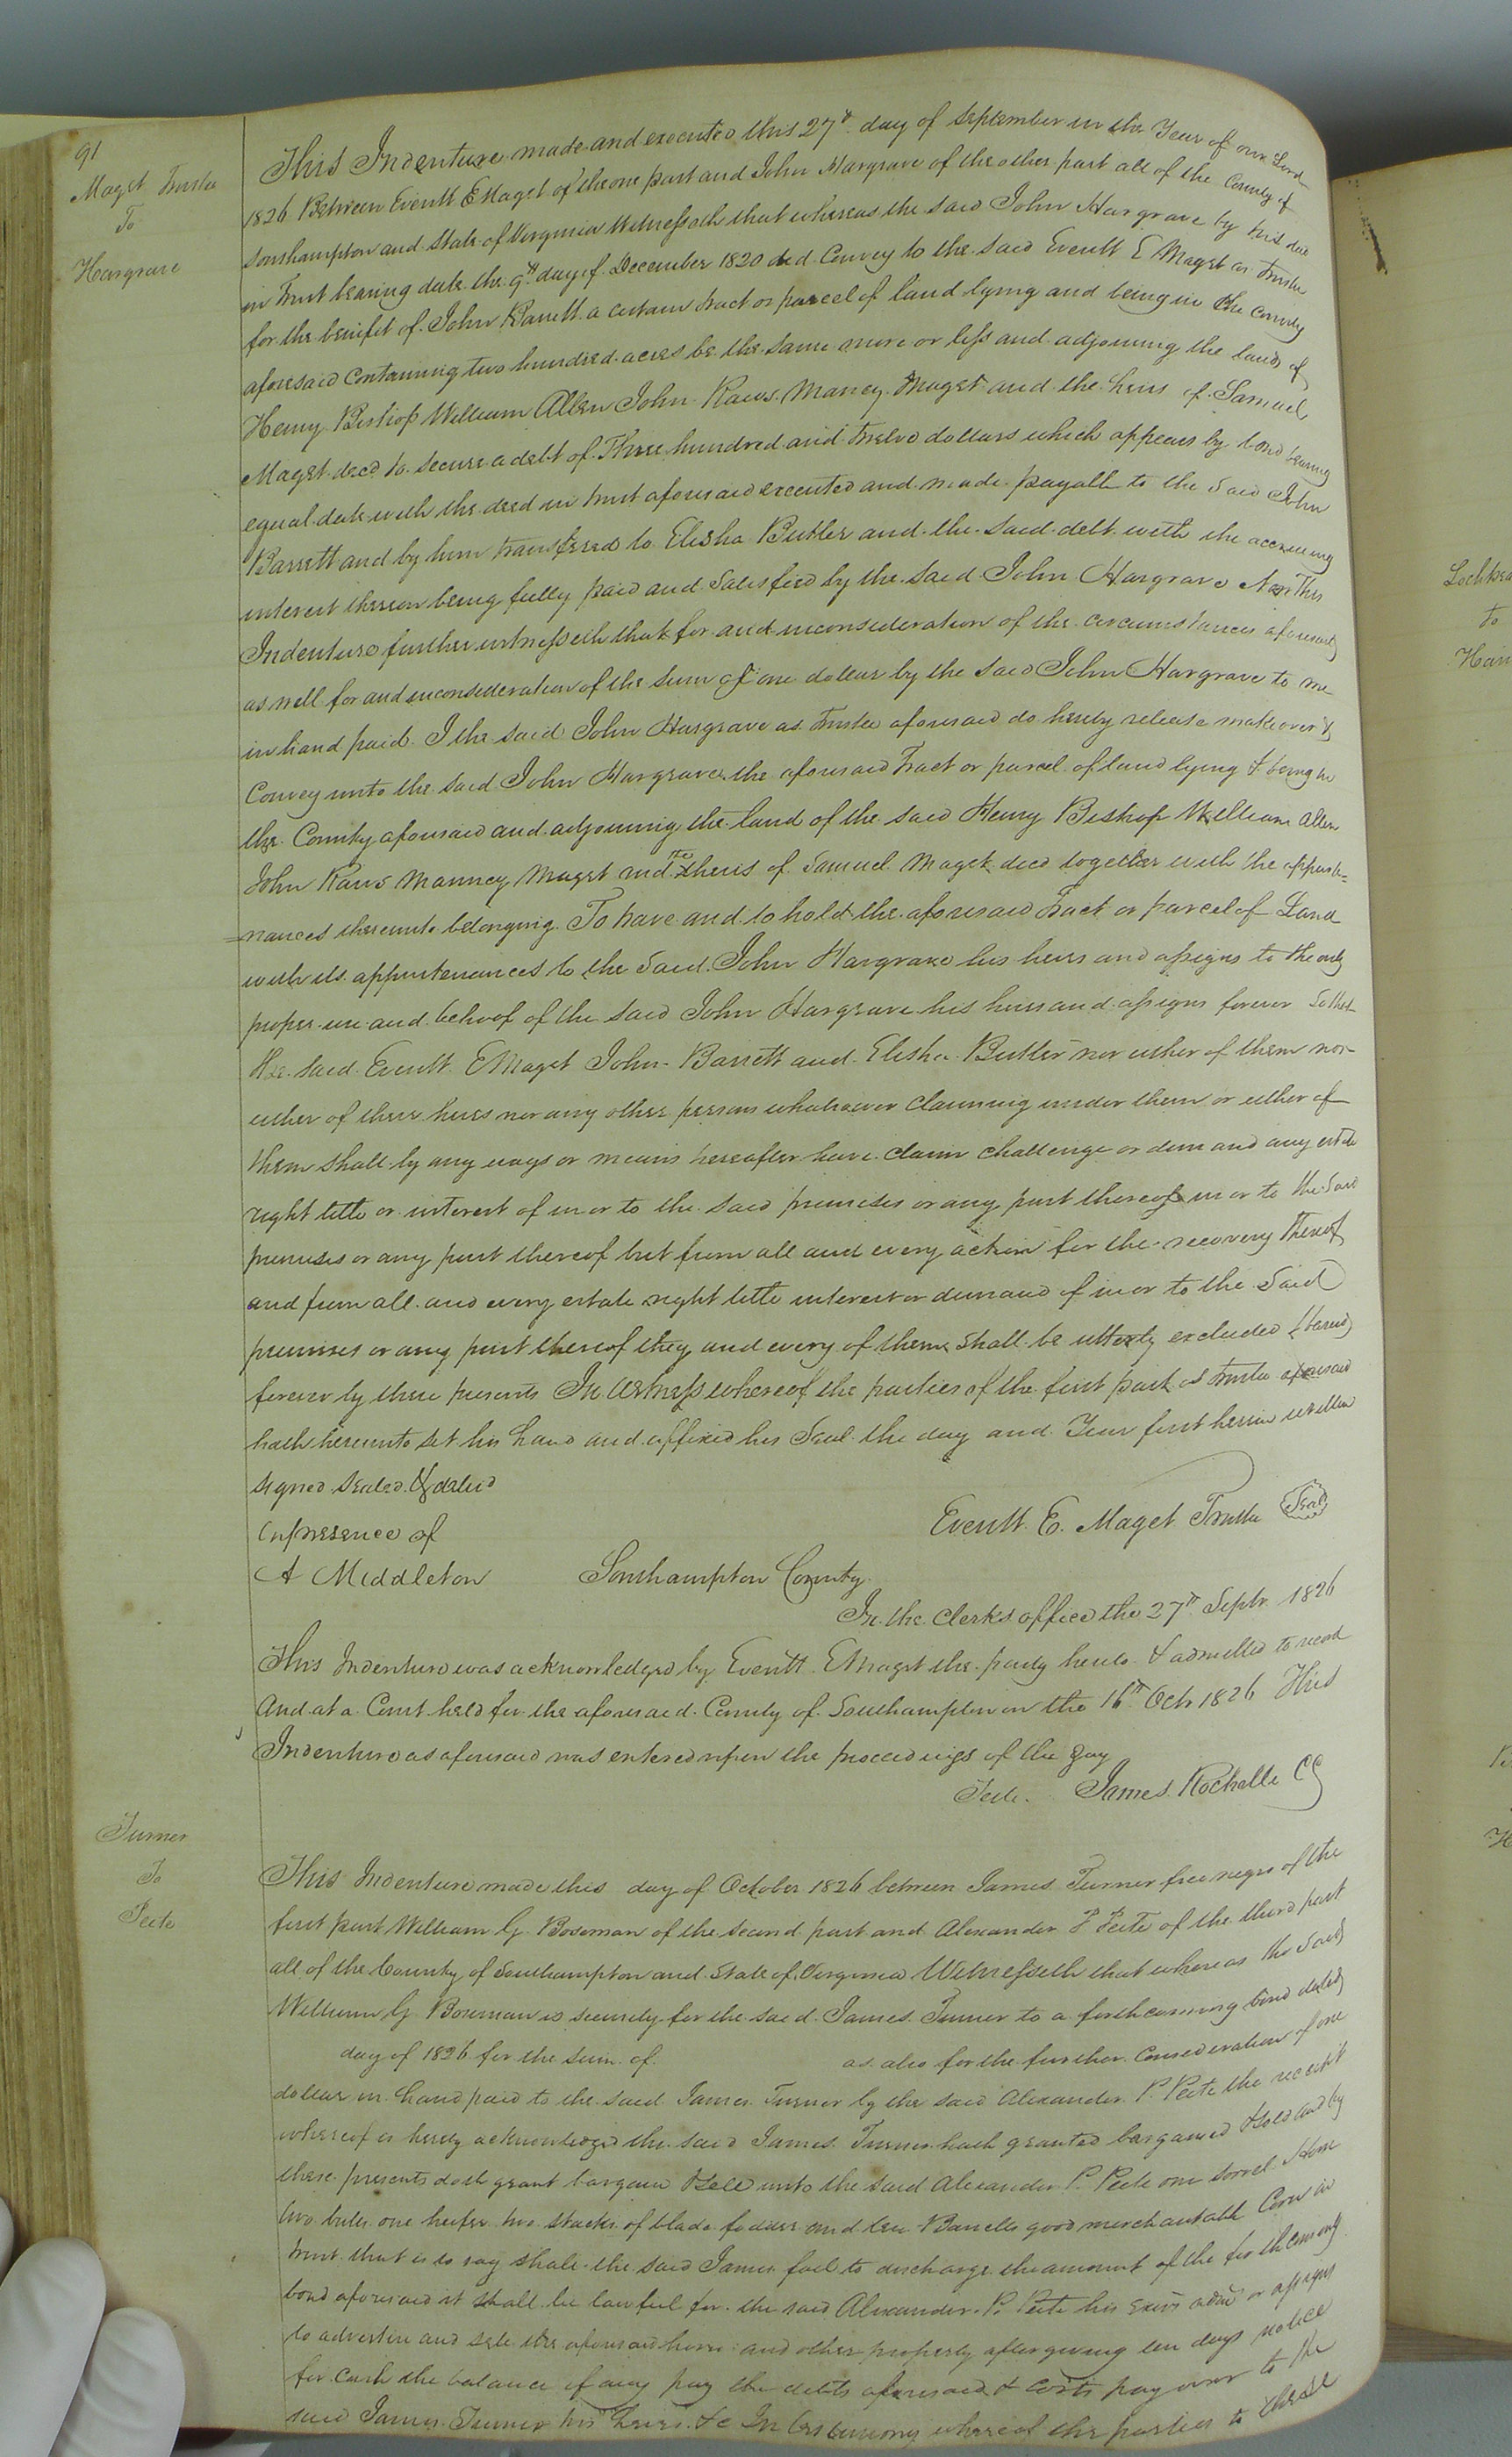 91
Maget Trustee
To
Hargrave
This Indenture made and executed this 27th day of September in the Year of our Lord
1826 Between Everitt E Maget of the one part and John Hargrave of the other part all of the County of
Southampton and State of Virginia Witnesseth that whereas the said John Hargrave by his deed
in Trust bearing date the 9th day of December 1820 did Convey to the said Everitt E Maget as Trustee
for the benifit of John Barrett a certain tract or parcel of land lying and being in the County
aforesaid containing two hundred acres be the same more or less and adjoining the lands of
Henry Bishop William Allen John Raws Maney Maget and the heirs of Samuel
Maget decd to secure a debt of Three hundred and twelve dollars which appears by bond bearing
equal date with the deed in trust aforesaid executed and made payable to the said John
Barrett and by him transfered to Elisha Butler and the said debt with the accrueing
interest thereon being fully paid and satisfied by the said John Hargrave Now This
Indenture further witnesseth that for and in consideration of the circumstances aforesaid
as well for and in consideration of the sum of one dollar by the said John Hargrave to me
in hand paid I the said John Hargrave as Trustee aforesaid do hereby release make over &
Convey unto the said John Hargrave the aforesaid Tract or parcel of land lying & being in
the County aforesaid and adjoining the land of the said Henry Bishop William Allen
John Raws Manney Maget and the heirs of Samuel Maget decd together with the appurte=
=nances thereunto belonging To have and to hold the aforesaid Tract or parcel of Land
with its appurtenances to the said John Hargrave his heirs and assigns to the only
proper use and behoof of the said John Hargrave his heirs and assigns forever So that
the said Everitt E Maget John Barrett and Elisha Butler nor either of them nor
either of their heirs nor any other person whatsoever claiming under them or either of
them shall by any ways or means hereafter have claim challenge or demand any estate
right title or interest of in or to the said premises or any part thereof in or to the said
premises or any part thereof but from all and every action for the recovery thereof
and from all and every estate right title interest or demand of in or to the Said
premises or any part thereof they and every of them shall be utterly excluded & barred
forever by these presents In Witness whereof the parties of the first part as trustee aforesaid
hath hereunto set his hand and affixed his Seal the day and Year first herein written
Signed Sealed & delivd
in presence of
Everitt E. Maget Trustee Seal
A Middleton
Southampton County
In the Clerks office the 27th Septr 1826
This Indenture was acknowledged by Everitt E Maget the party hereto & admitted to record
And at a Court held for the aforesaid County of Southampton on the 16th Octr 1826 This
Indenture as aforesaid was entered upon the proceedings of the day
Teste James Rochelle CC
Turner
To
Peete
This Indenture made this day of October 1826 between James Turner free negro of the
first part William G Boseman of the second part and Alexander P Peete of the third part
all of the County of Southampton and State of Virginia Witnesseth that whereas the said
William G Bowman is security for the said James Turner to a forthcoming bond dated
day of 1826 for the sum of as also for the further consideration of one
dollar in hand paid to the said James Turner by the said Alexander P. Peete the receipt
whereof is hereby acknowledged the said James Turner hath granted bargained & sold and by
these presents doth grant bargain & sell unto the said Alexander P. Peete one sorrel Horse
two bulls one heifer two stacks of blade fodder and ten Barrells good merchantable Corn in
trust that is to say shall the said James fail to discharge the amount of the forthcoming
bond aforesaid it shall be lawful for the said Alexander P. Peete his exrs adms or assigns
to advertise and sale the aforesaid horse and other property after giving ten days notice
for cash the balance if any pay the debts aforesaid & costs pay over to the
said James Turner his heirs &c In testimony whereof the parties to these
Lockhea
To
Hain